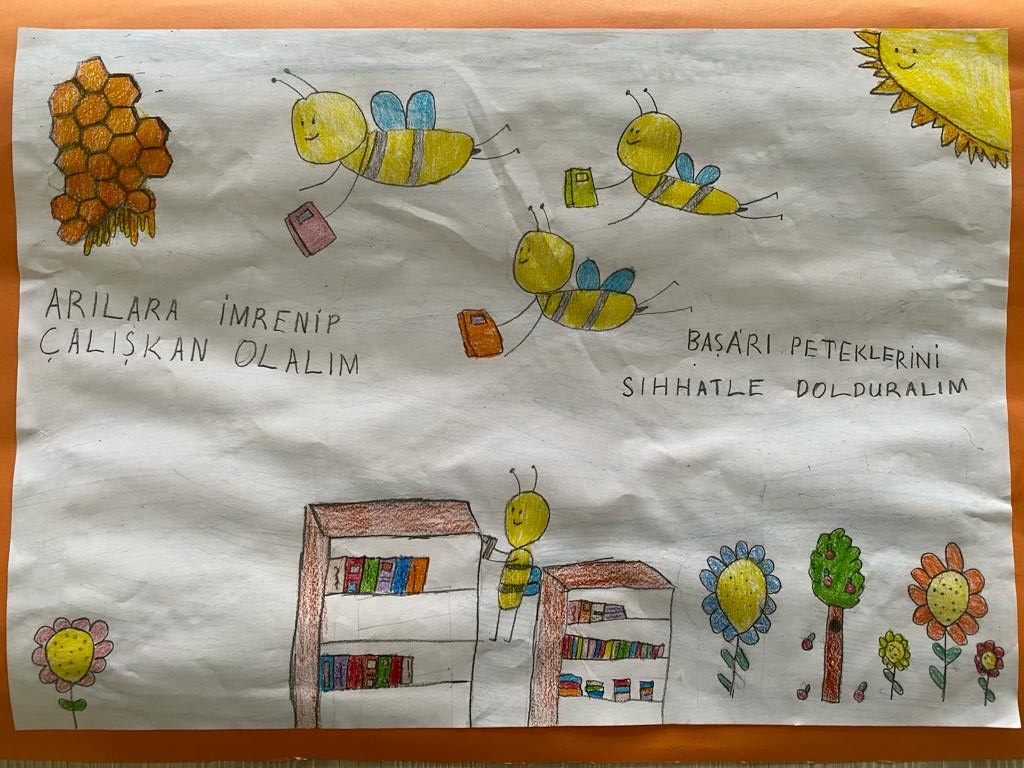 ARILARA İMRENİP
ÇALIŞKAN OLALIM
BAŞARI PETEKLERİNİ
SIHHATLE DOLDURALIM